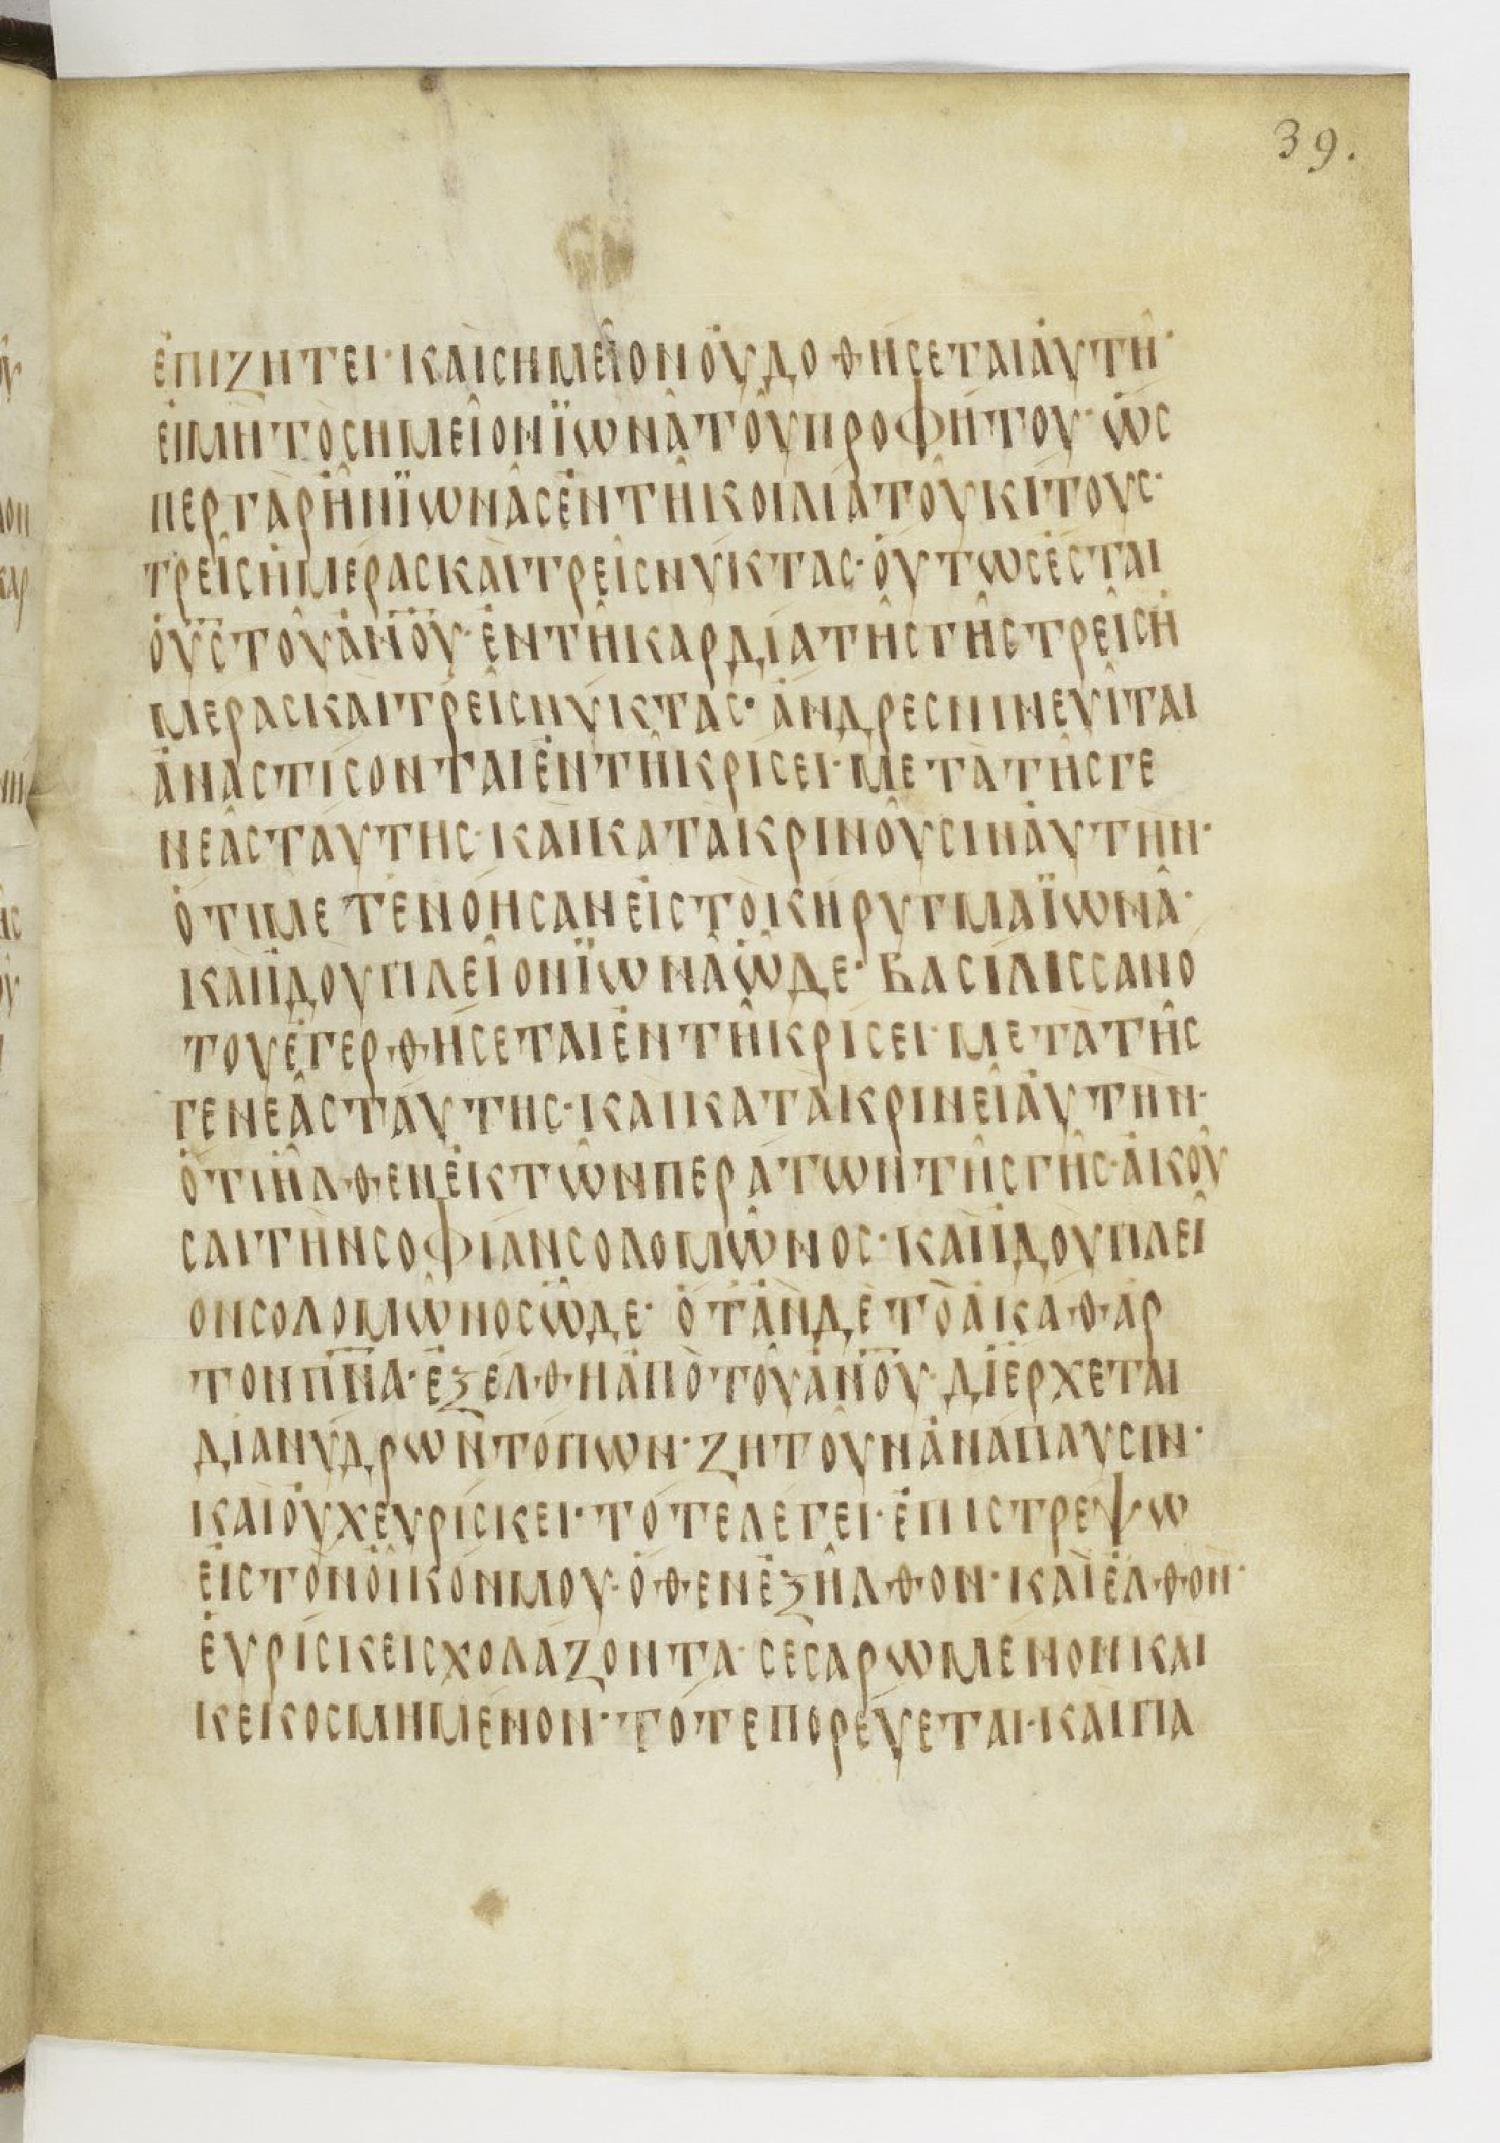 39.
ἐπιζητεῖ· καὶ σημεῖον ὀυ δοθήσεται ἀυτῆ·
ἐι μὴ τὸ σημεῖον ϊωνᾶ τοῦ προφήτου· ὥσ
περ γὰρ ἦν ϊωνᾶς ἐν τῆ κοιλία τοῦ κίτους·
τρεῖς ἡμέρας καὶ τρεῖς νύκτας· ὅυτως ἔσται
ὁ υ̅ς̅ τοῦ ἀ̅ν̅ο̅υ̅· ἐν τῆ καρδία τῆς γῆς τρεῖς ἡ
μέρας καὶ τρεῖς νύκτας· ἄνδρες νινευῖται
ἀναστίσονται ἐν τῆ κρίσει· μετὰ τῆς γε
νεᾶς ταύτης· καὶ κατακρινοῦσιν ἀυτήν·
ὅτι μετενόησαν ἐις τὸ κήρυγμα ϊωνᾶ·
καὶ ἰδοὺ πλεῖον ϊωνᾶ ὧδε· βασίλισσα νό
του ἐγερθήσεται ἐν τῆ κρίσει· μετὰ τῆς
γενεᾶς ταύτης· καὶ κατακρινεῖ ἀυτήν·
ὅτι ἦλθεν ἐκ τῶν περάτων τῆς γῆς· ἀκοῦ
σαι τὴν σοφίαν σολομῶνος· καὶ ἰδοὺ πλεῖ
ον σολομῶνος ὧδε· ὅταν δὲ τὸ ἀκάθαρ
τον π̅ν̅α̅· ἐξέλθη ἀπὸ τοῦ ἀ̅ν̅ο̅υ̅· διέρχεται
δι ανύδρων τόπων· ζητοῦν ἀνάπαυσιν·
καὶ ὀυχ ευρίσκει· τότε λέγει· ἐπιστρέψω
ἐις τὸν ὀῖκόν μου· ὅθεν ἐξῆλθον· καὶ ἐλθὸν·
ἑυρίσκει σχολάζοντα· σεσαρωμένον και
κεκοσμημένον· τότε πορέυεται· καὶ πα